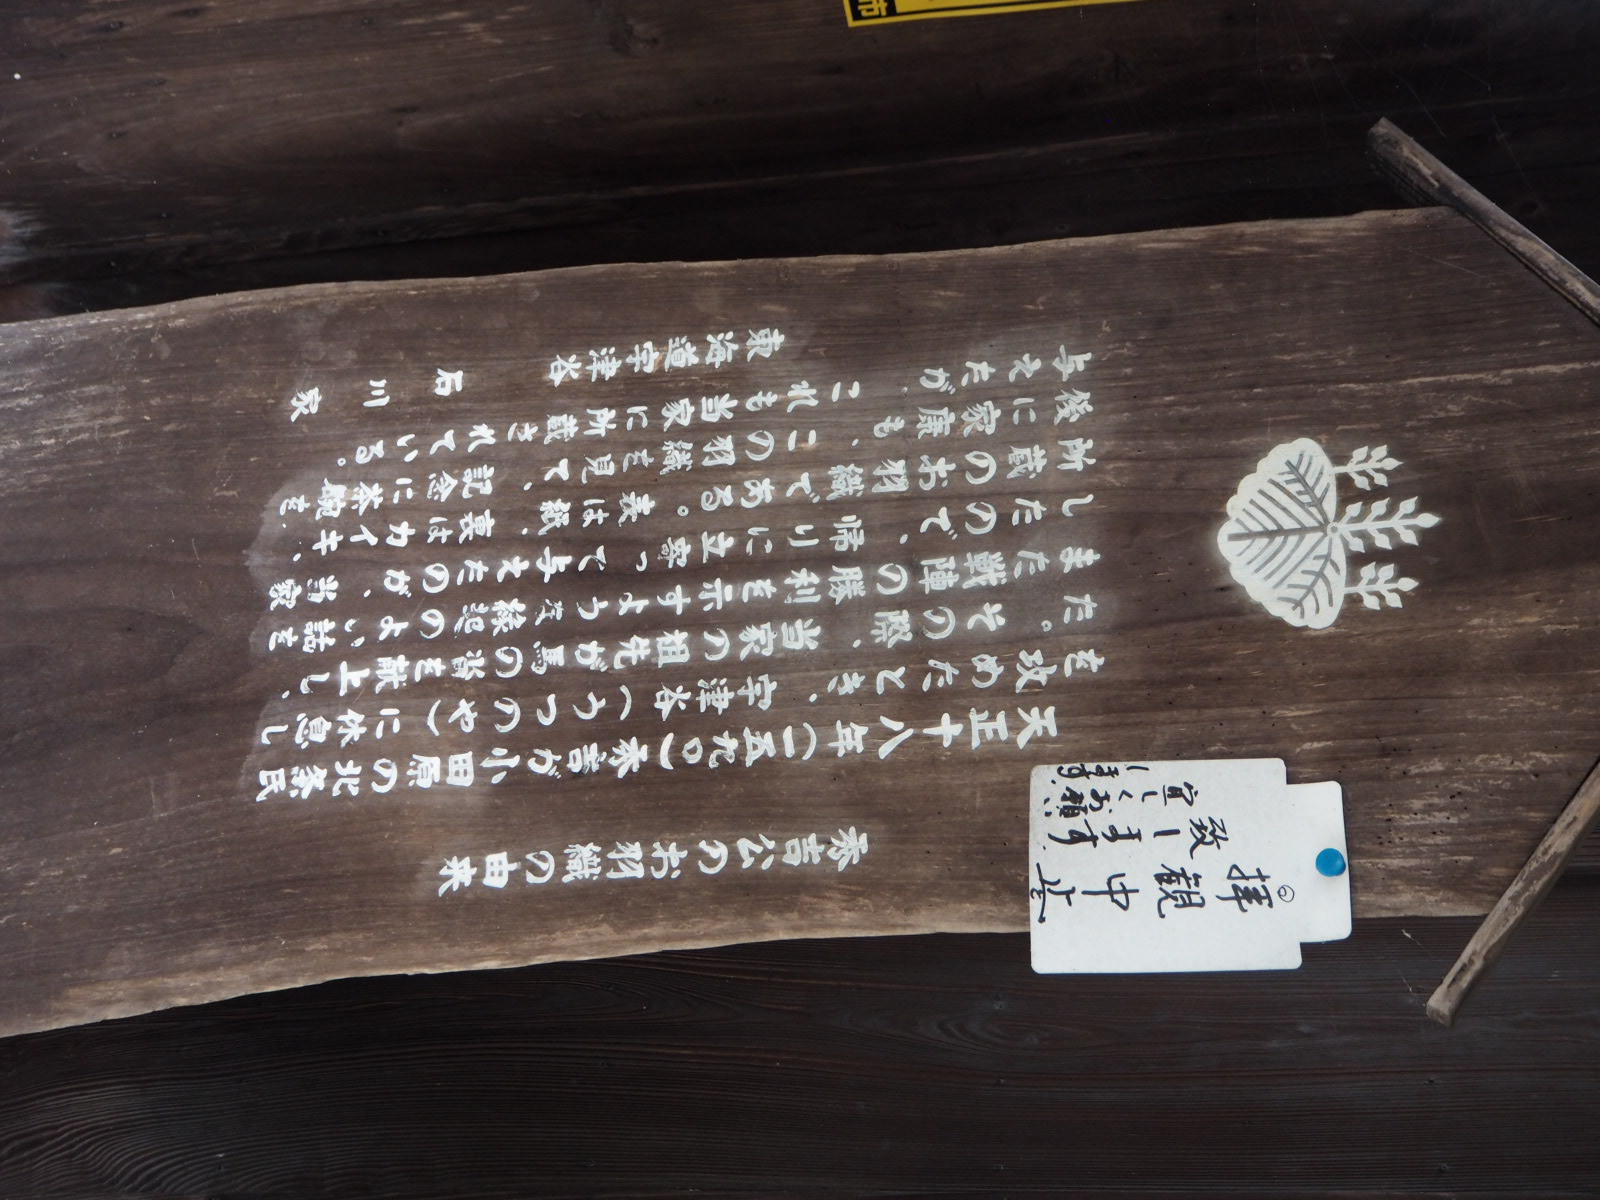 秀吉公のお羽織の由来
天正十八年(一五九〇)秀吉が小田原の北条氏
を攻めたとき、宇津谷(うつのや)に休息し
た。その際、当家の祖先が馬の沓を献上し、
また戦陣の勝利を示すような縁起のよい話を
したので、帰りに立寄って与えたのが、当家
所蔵のお羽織である。表は紙、裏はカイキ、
後に家康も、この羽織を見て、記念に茶碗を
与えたが、これも当家に所蔵されている。
東海道宇津谷
石川家
拝観中止
致します
宜しくお願い
します
市